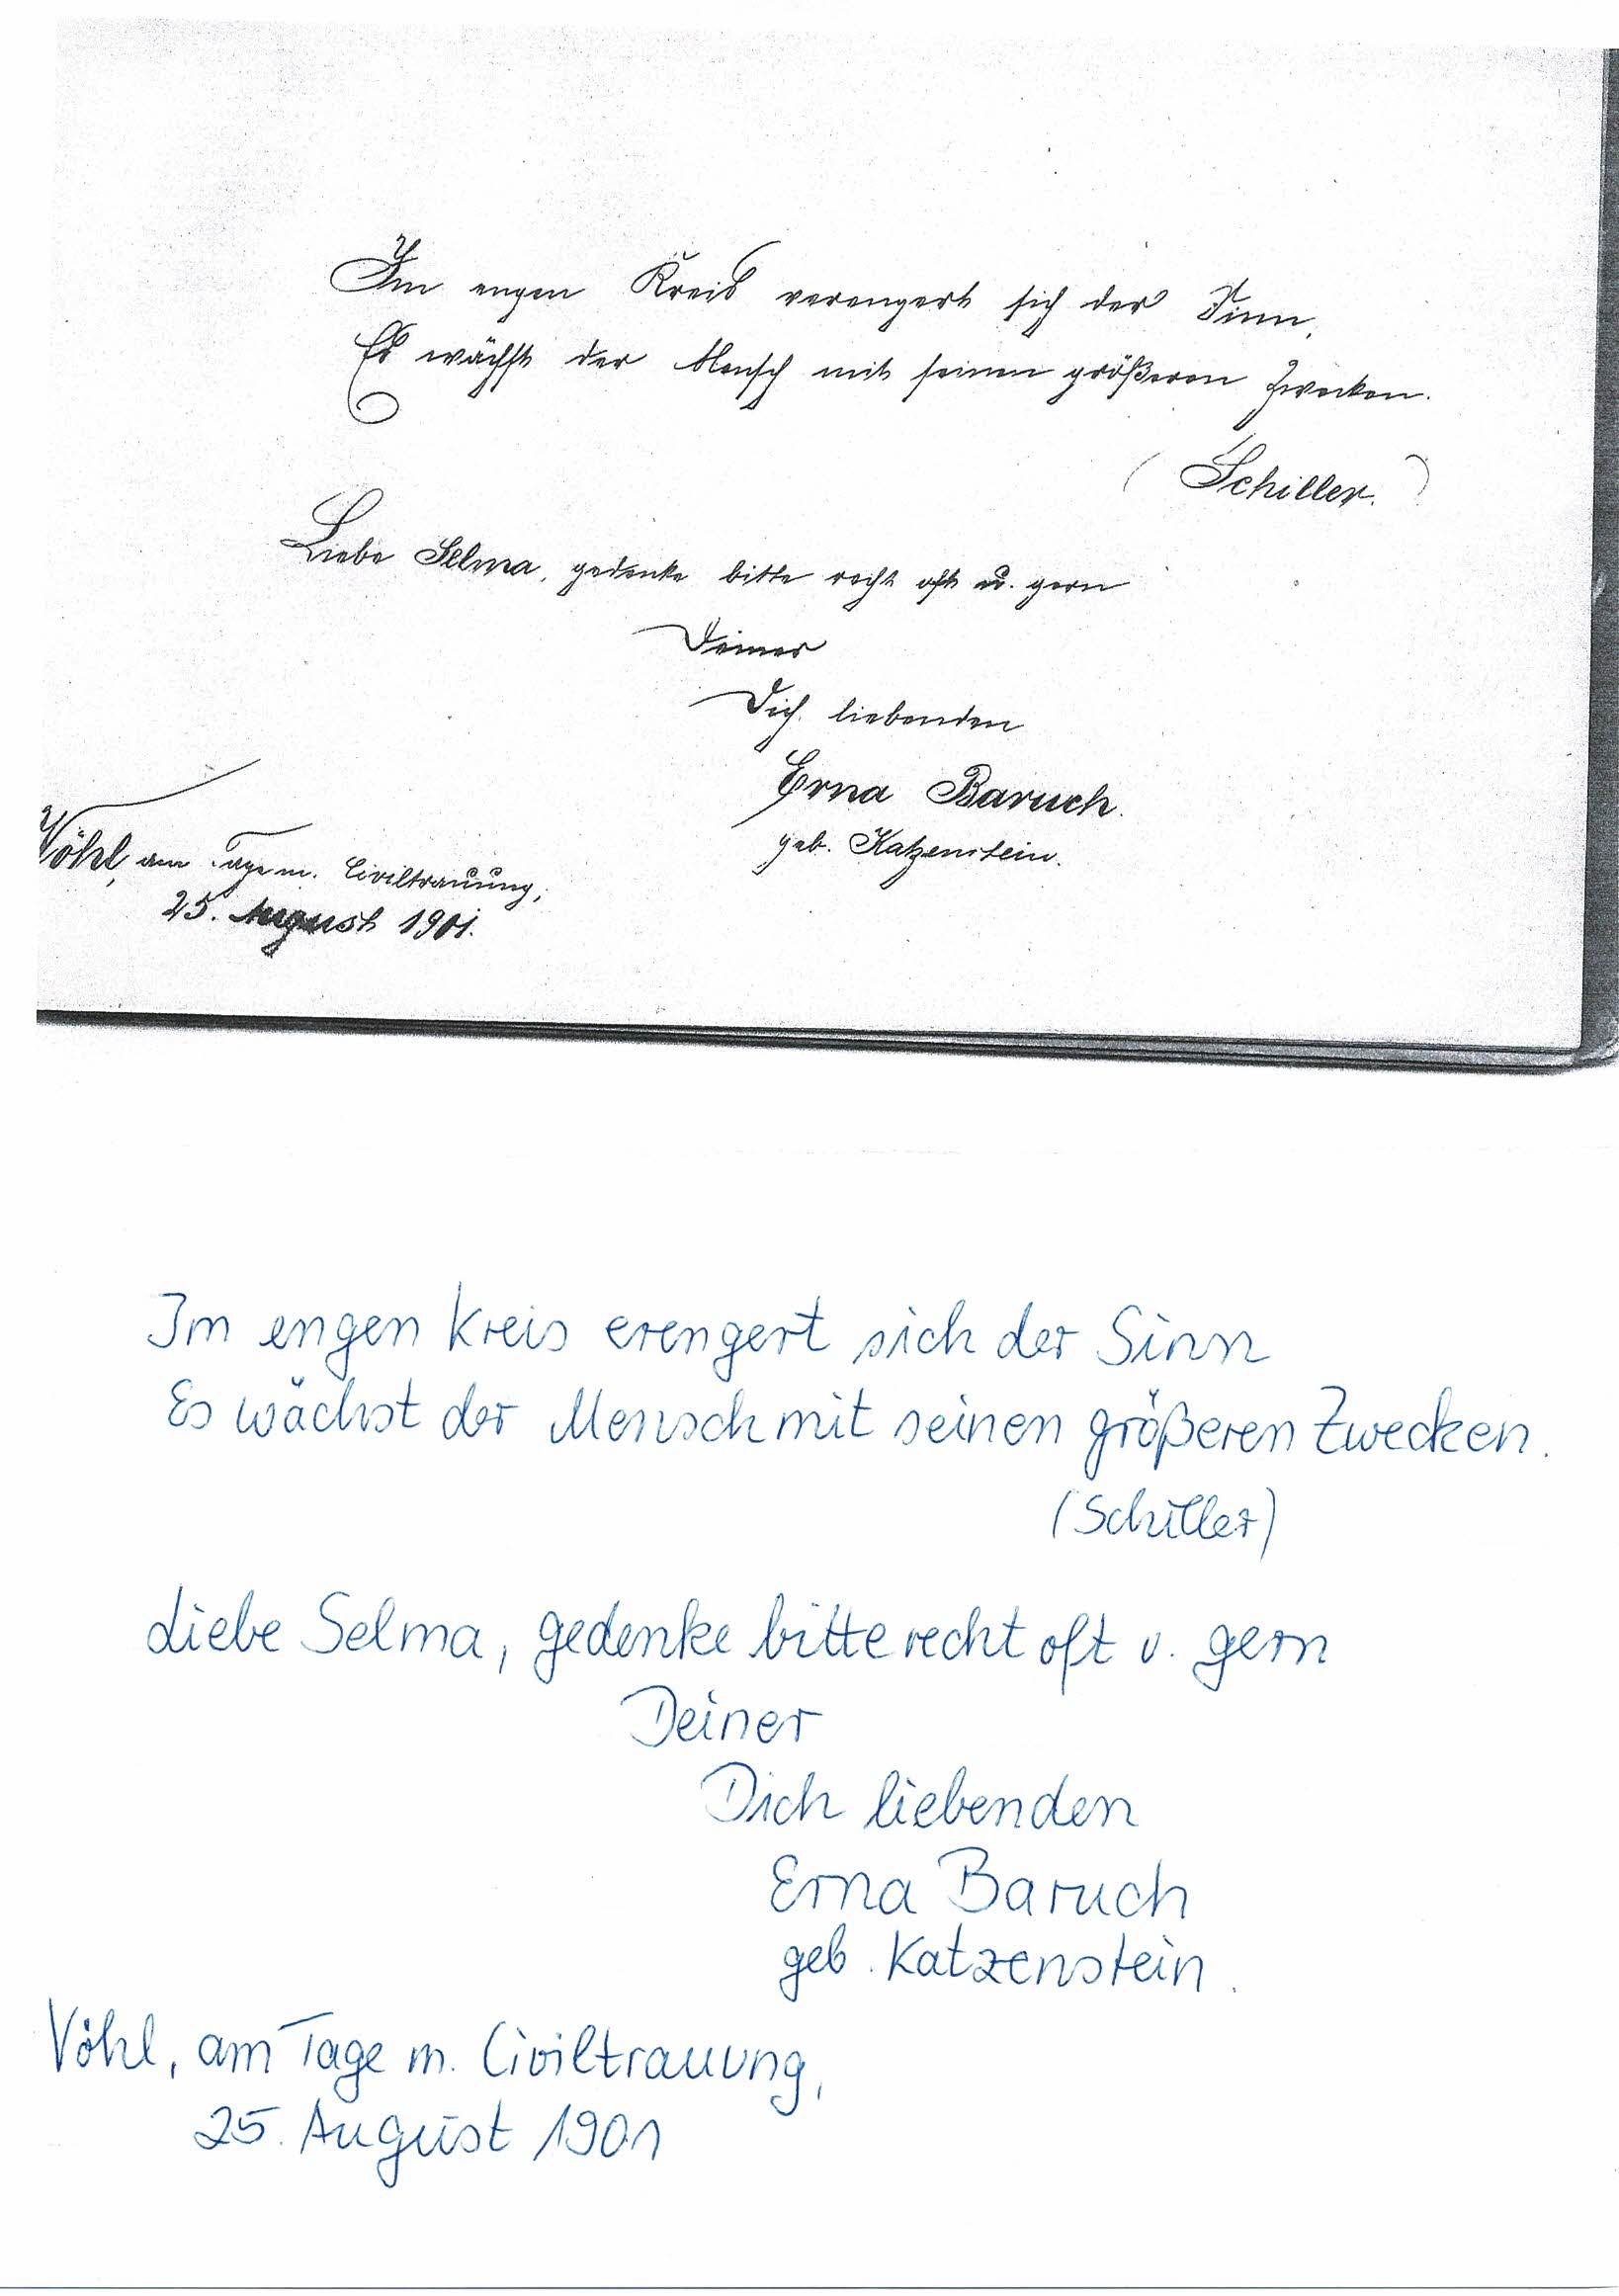 Im engen Kreis verengert sich der Sinn,
Es wächst der Mensch mit seinen größeren Zwecken.
(Schiller.)
Liebe Selma, gedenke bitte recht oft u. gern
Deiner
Dich liebenden
Erna Baruch.
geb. Katzenstein.
Vöhl, am Tage m. Civiltrauung,
25. August 1901.
Im engen Kreis erengert sich der Sinn
Es wächst der Mensch mit seinen größeren Zwecken.
(Schiller)
Liebe Selma, gedenke bitte recht oft u. gern
Deiner
Dich liebenden
Erna Baruch
geb. Katzenstein.
Vöhl, am Tage m. Civiltrauung,
25. August 1901